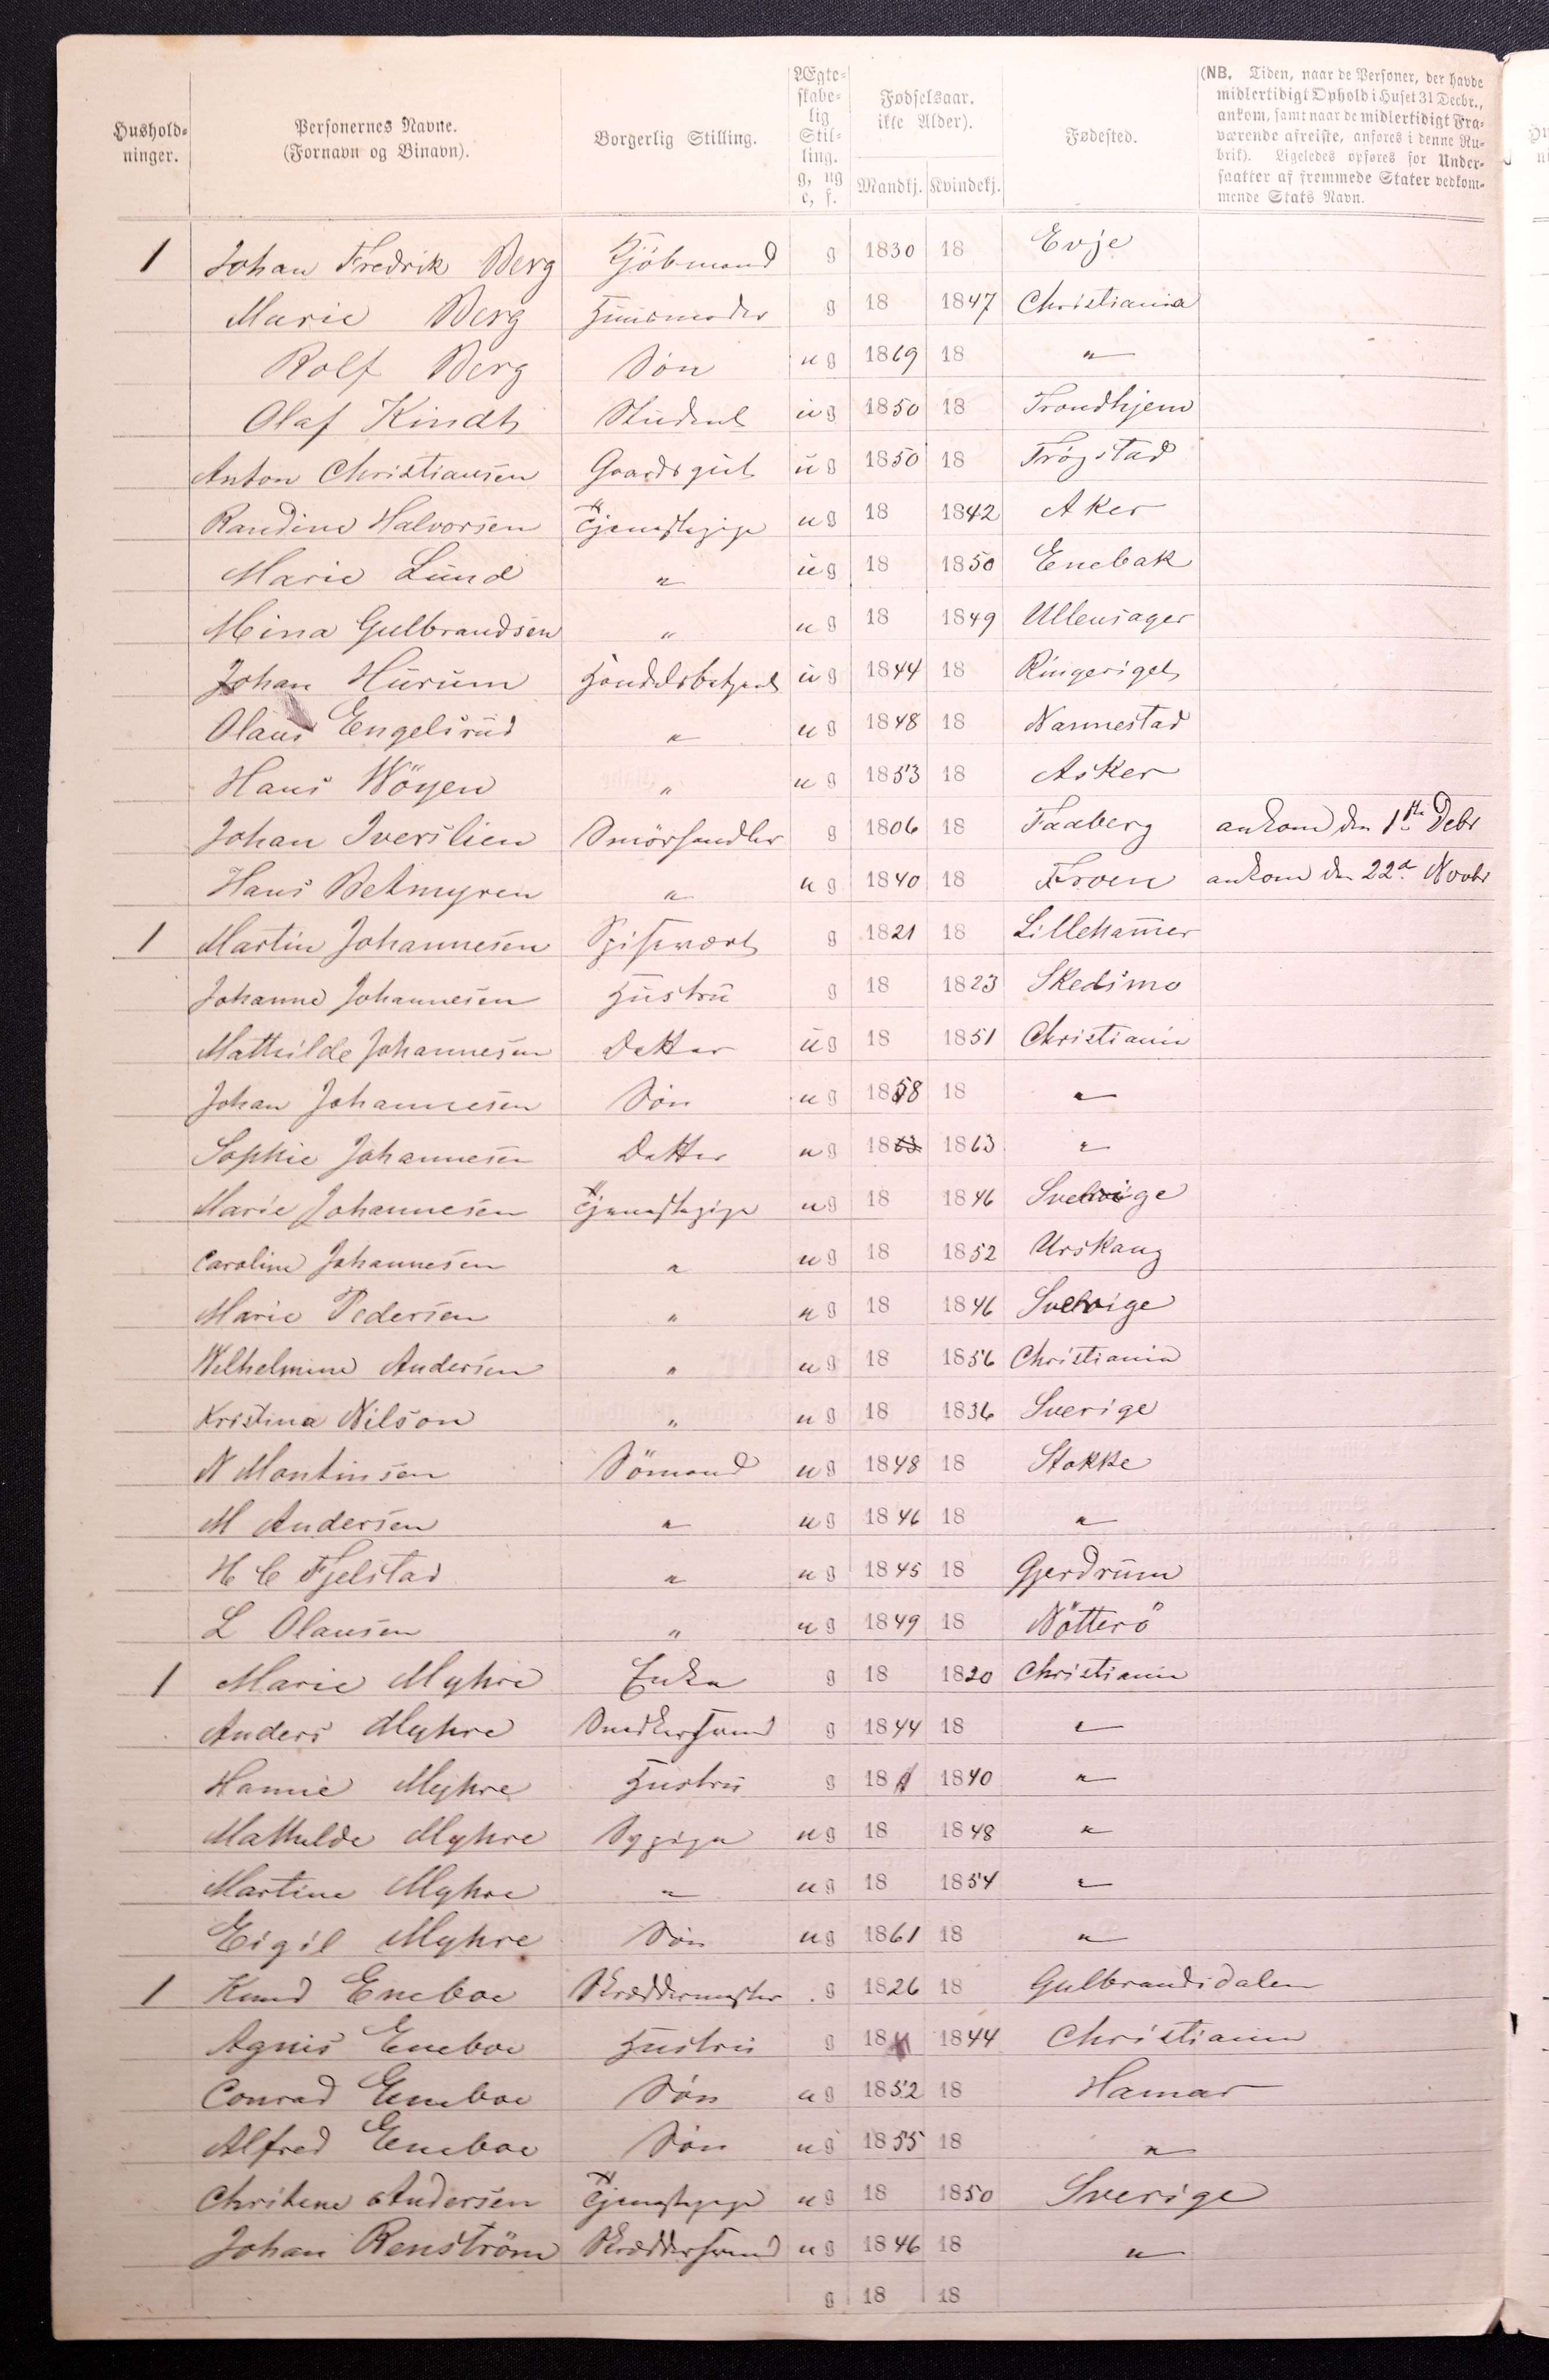 Hushold-
ninger.
Personernes Navne.
(Fornavn og Binavn).
Borgerlig Stilling.
Ægte-
skabe-
lig
Stil-
ling.
g, ug
e, f.
Fødselsaar.
ikke Alder).
Mandkj. Kvindekj.
Fødested.
(NB. Tiden, naar de Personer, der havde
midlertidigt Ophold i Huset 31 Decbr.,
ankom, samt naar de midlertidigt Fra-
værende afreiste, anføres i denne Ru-
brik). Ligeledes opføres for Under-
saatter af fremmede Stater vedkom-
mende Stats Navn.
1 Johan Fredrik Berg Kjöbmand g 1830 18 Evje
Marie Berg Huusmoder g 18 1847 Christiania
Rolf Berg Sön ug 1869 18 "
Olaf Kindt Student ug 1850 18 Trondhjem
Anton Christiansen Gaardsgut ug 1850 18 Trögstad
Randine Halvorsen Tjenestepige ug 18 1842 Aker
Marie Lund " ug 18 1850 Enebak
Mina Gulbrandsen " ug 18 1849 Ullensager
Johan Hurum Handelsbetjent ug 1844 18 Ringeriget
Olaus Engelsrud " ug 1848 18 Nannestad
Hans Wöyen " ug 1853 18 Asker
Johan Iverslien Smörhandler g 1806 18 Faaberg ankom den 1ste Debr
Hans Betmyren " ug 1840 18 Froen ankom den 22d Novbr
1 Martin Johannesen Spisevært g 1821 18 Lillehamer
Johanne Johannesen Hustru g 18 1823 Skedsmo
Mathilde Johannesen Datter ug 18 1851 Christiania
Johan Johannesen Sön ug 1858 18 "
Sophie Johannesen Datter ug 1863 1863 "
Marie Johannesen Tjenestepige ug 18 1846 Sverige
Caroline Johannesen " ug 18 1852 Urskaug
Marie Pedersen " ug 18 1846 Sverige
Wilhelmine Andersen " ug 18 1856 Christiania
Kristina Nilson " ug 18 1836 Sverige
N Martinsen Sömand ug 1848 18 Stokke
M Andersen " ug 1846 18 "
H C Fjelstad " ug 1845 18 Gjerdrum
L Olausen " ug 1849 18 Nötterö
1 Marie Myhre Enke g 18 1820 Christiania
Anders Myhre Snedkersvend g 1844 18 "
Hanne Myhre Hustru g 18 1840 "
Mathilde Myhre Sypige ug 18 1848 "
Martine Myhre " ug 18 1854 "
Eigil Myhre Sön ug 1861 18 "
1 Knud Eneboe Skræddermester g 1826 18 Gulbrandsdalen
Agnes Eneboe Hustru g 18 1844 Christiania
Conrad Eneboe Sön ug 1852 18 Hamar
Alfred Eneboe Sön ug 1855 18 "
Christine Andersen Tjenestepige ug 18 1850 Sverige
Johan Renström Skræddersvend ug 1846 18 "
g 18 18